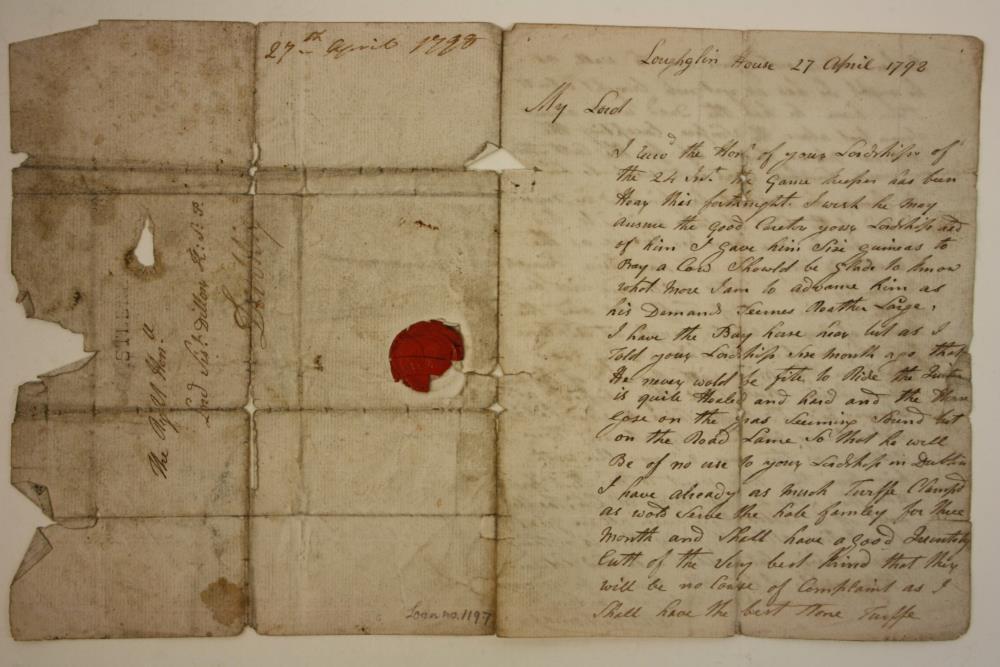 27th April 1798
The Right Hon.
Lord Vist. Dillon K. S. P.
Dublin
Loan no. 1197
Loughglin House 27 April 1798
My Lord
I Recd the Honr of your Lordships of
the 24 Inst. the Game keeper has been
Hear this fortnight I wish he may
ansure the good Caretor your Lordship
of him I gave him Size guineas to
Bay a Cow Should be glade to know
what More I am to advance him as
his Demands Seemes Reather Large,
I have the Bay horse hear but as I
Told your Lordship Sixe Month ago that
He never wold be fite to Ride the
is quite Healed and hard and the Horse
Gose on the gras Seeming Sound but
on the Road Lame So that he will
Be of no use to your Lordship in Dublin
I have already as much Turffe Clampd
as wold Serve the hole famley for three
Month and Shall have a good Quentity
Cutt of the very best Kind that thire
will be no Cause of Complaint as I
Shall have the best Stone Turffe